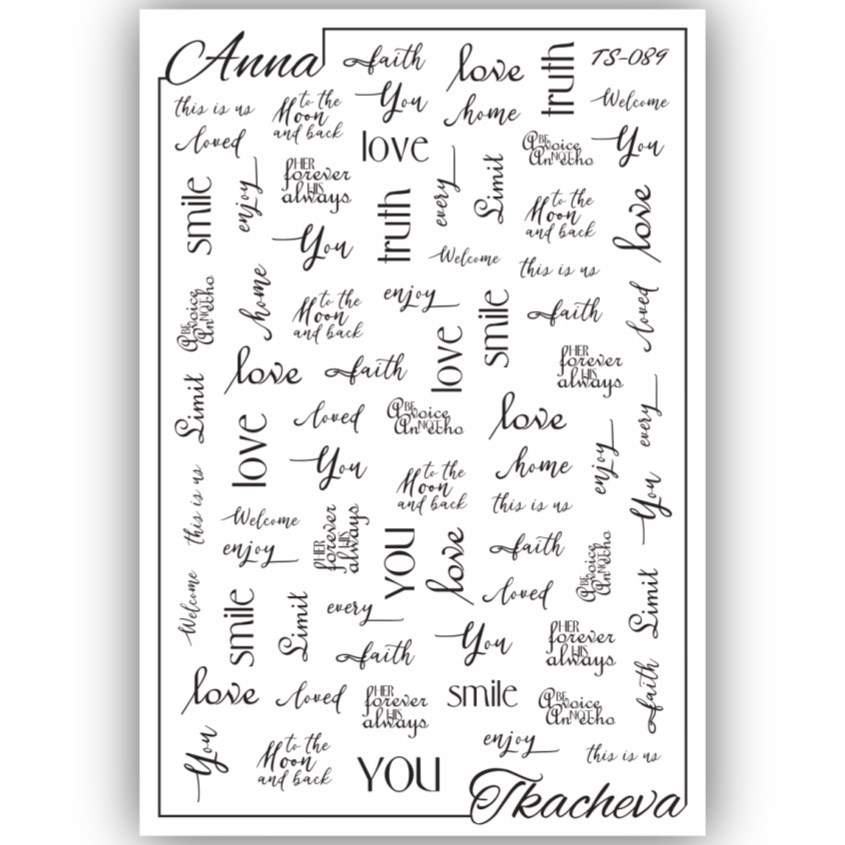 Anna
faith
love
truth
TS-089
this is us
to the
Moon
and back
You
home
Welcome
loved
love
BE
A voice
NOT
An echo
You
smile
enjoy
HER
forever
HIS
always
truth
every
Limit
to the
Moon
and back
love
You
Welcome
this is us
BE
A voice
NOT
An echo
home
to the
Moon
and back
enjoy
smile
faith
loved
love
faith
love
HER
forever
HIS
always
Limit
love
loved
BE
A voice
NOT
An echo
love
every
You
to the
Moon
and back
home
enjoy
You
this is us
Welcome
enjoy
HER
forever
HIS
always
YOU
love
this is us
faith
BE
A voice
NOT
An echo
Welcome
smile
Limit
every
loved
Limit
faith
You
HER
forever
HIS
always
love
loved
HER
forever
HIS
always
smile
BE
A voice
NOT
An echo
faith
You
to the
Moon
and back
YOU
enjoy
this is us
Tkacheva